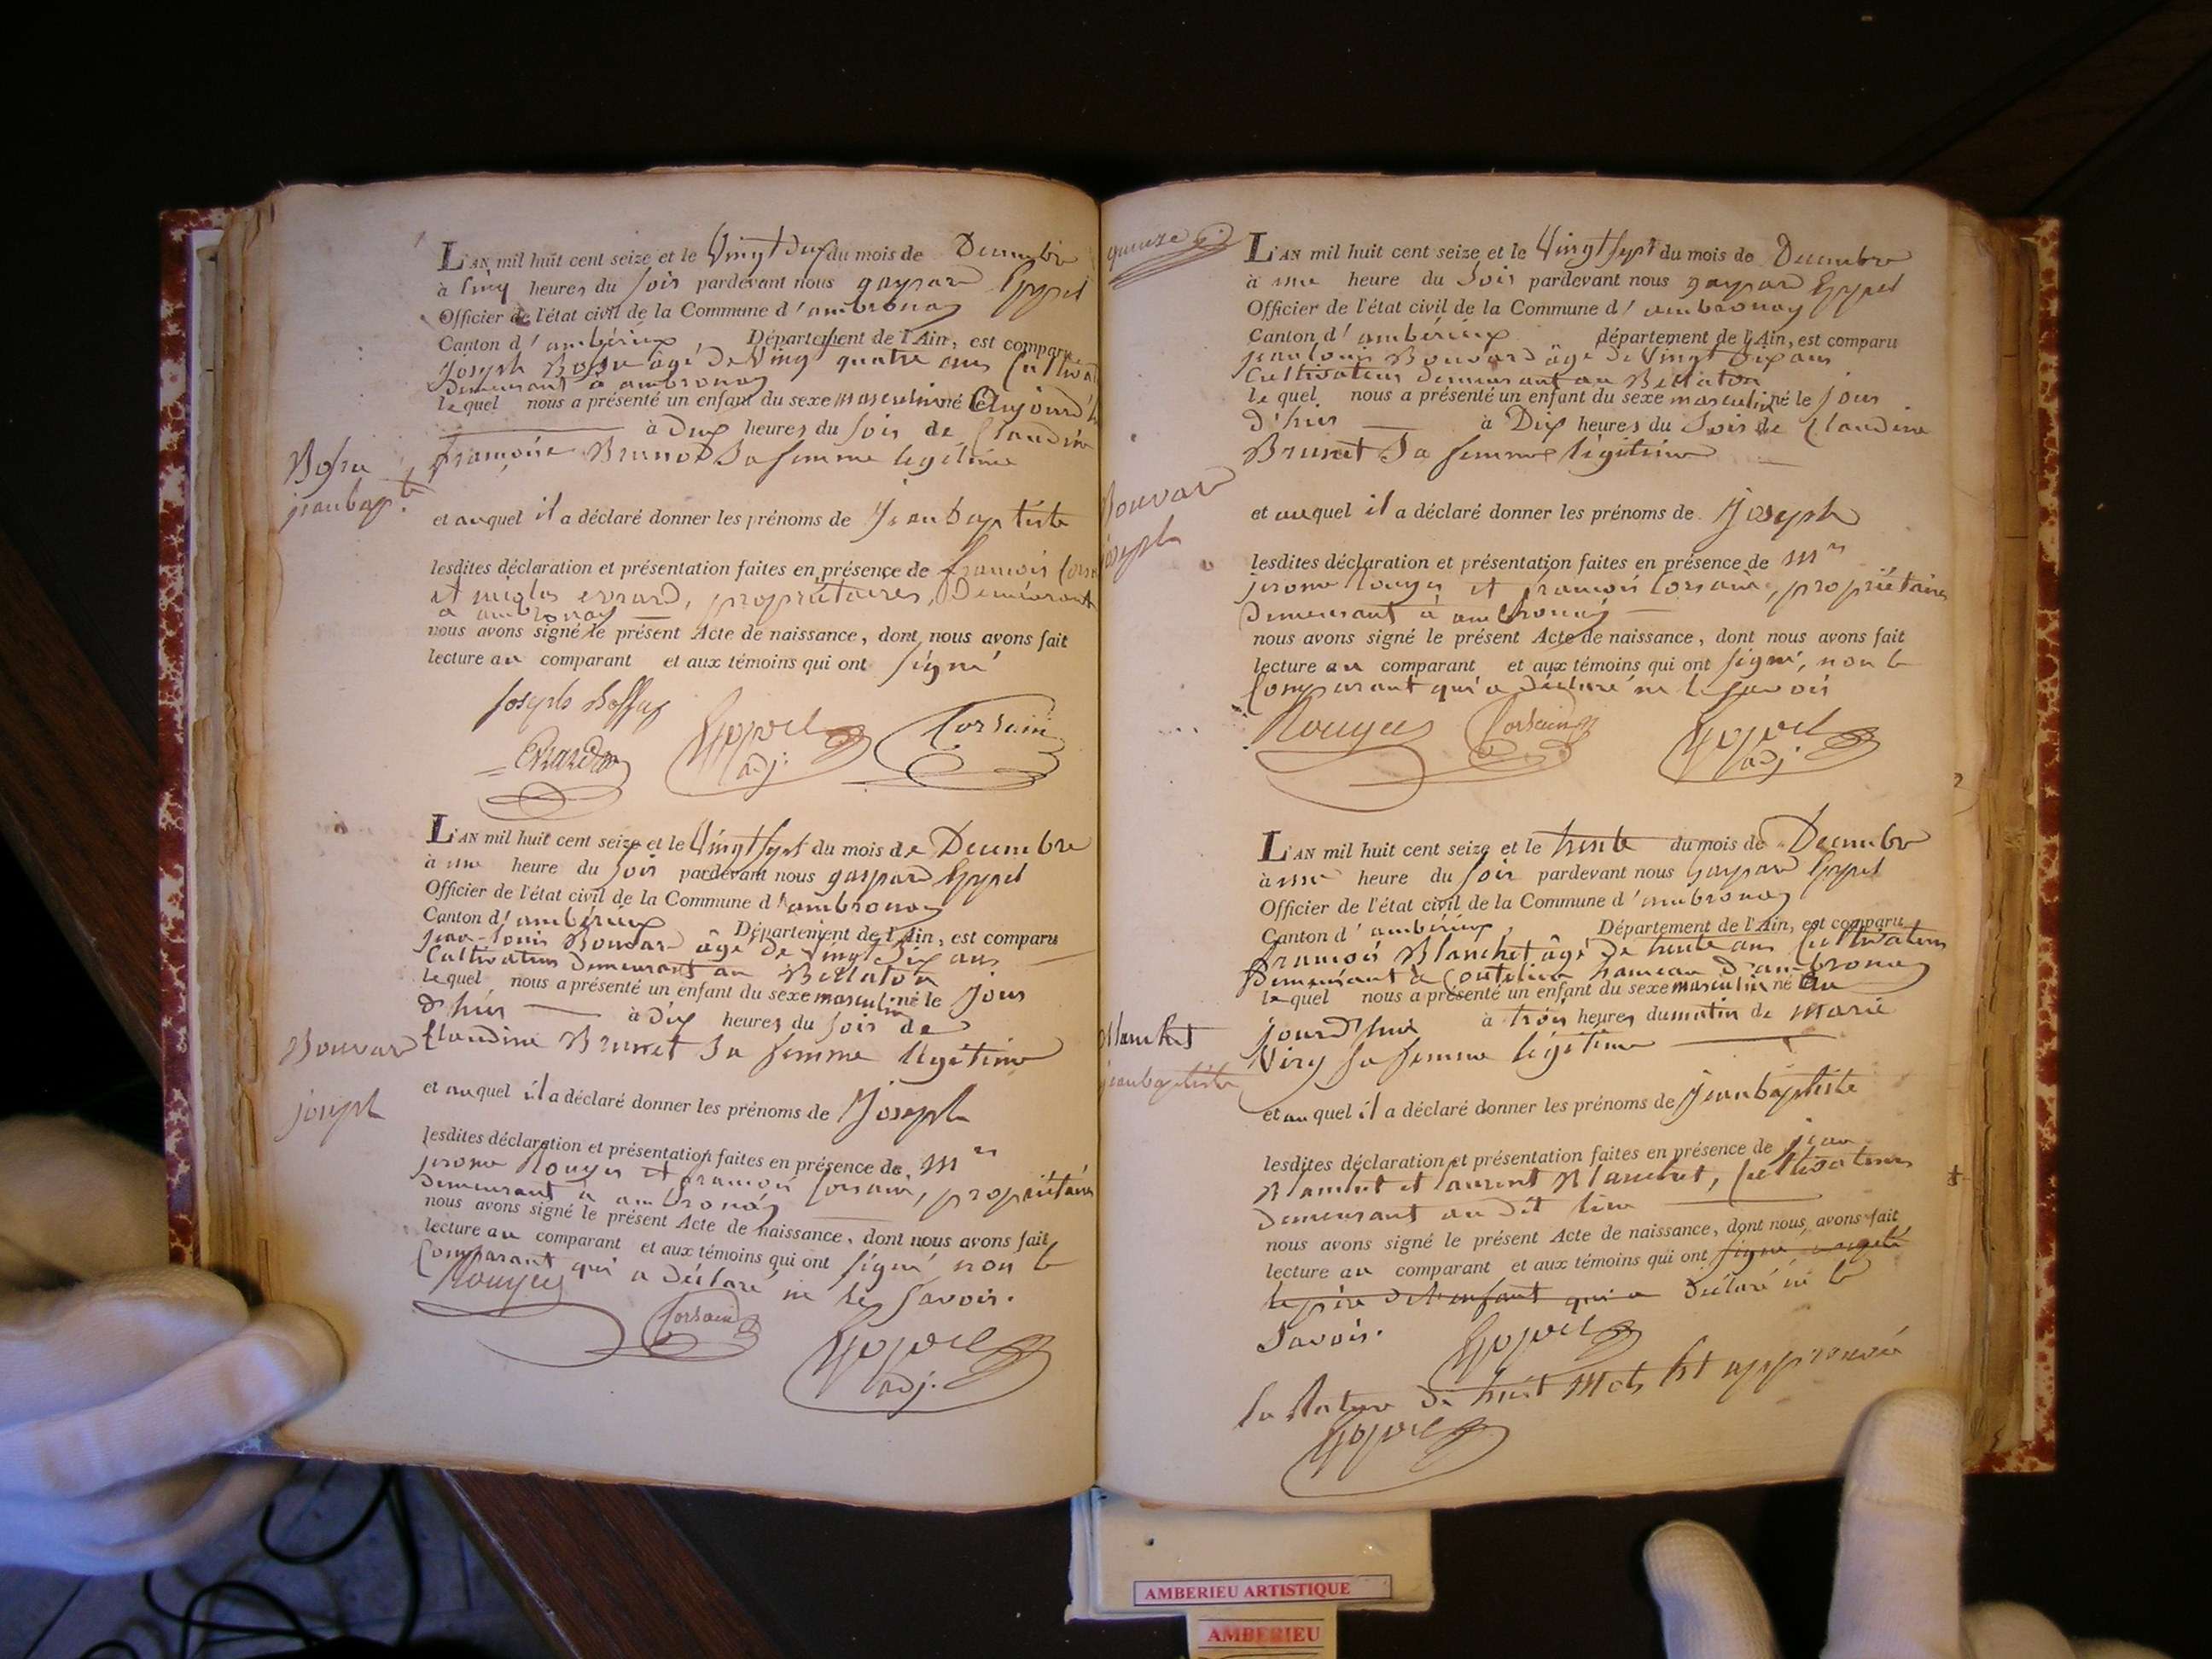 L'AN mil huit cent seize et le Vingt deux du mois de Decembre
à Cinq heures du soir pardevant nous gaspard
Officier de l'état civil de la Commune d'ambronay
Canton d'ambérieux, Département de l'Ain, est comparu
joseph âgé de Vingt quatre ans
demeurant à ambronay
lequel nous a présenté un enfant du sexe masculin né
à deux heures du soir de Claudine
sa femme legitime
jean bap.te
et auquel il a déclaré donner les prénoms de Jean baptiste
lesdites déclaration et présentation faites en présence de françois
et evrard, propriétaires, demeurant
a ambronay
nous avons signé le présent Acte de naissance, dont nous avons fait
lecture au comparant et aux témoins qui ont signé
joseph
Evrard adj. Corsain
L'AN mil huit cent seize et le Vingt sept du mois de Decembre
à une heure du soir pardevant nous gaspard
Officier de l'état civil de la Commune d'ambronay
Canton d'ambérieux Département de l'Ain, est comparu
jean-louis Bouvard âgé de Vingt dix ans
Cultivateur demeurant au Bellaton
lequel nous a présenté un enfant du sexe masculin né le jour
d'hier à dix heures du soir de
Claudine Brunet sa femme légitime
Bouvard
joseph
et auquel il a déclaré donner les prénoms de Joseph
lesdites déclaration et présentation faites en présence de Mrs
jerome Rouyer et françois Corsain, propriétaires
demeurant à ambronay
nous avons signé le présent Acte de naissance, dont nous avons fait
lecture au comparant et aux témoins qui ont signé non le
Comparant qui a déclaré ne le savoir.
Corsain
adj.
quinze
L'AN mil huit cent seize et le Vingt sept du mois de Decembre
à une heure du soir pardevant nous gaspard
Officier de l'état civil de la Commune d'ambronay
Canton d'ambérieux département de l'Ain, est comparu
jean louis Bouvard âgé de Vingt dix ans
Cultivateur demeurant au Bellaton
lequel nous a présenté un enfant du sexe masculin né le jour
d'hier à Dix heures du soir de Claudine
Brunet sa femme légitime
Bouvard
joseph
et auquel il a déclaré donner les prénoms de Joseph
lesdites déclaration et présentation faites en présence de Mrs
jerome Rouyer et françois Corsain, propriétaires
demeurant à ambronay
nous avons signé le présent Acte de naissance, dont nous avons fait
lecture au comparant et aux témoins qui ont signé, non le
Comparant qui a déclaré ne le savoir
Corsain adj.
L'AN mil huit cent seize et le trente du mois de Decembre
à une heure du soir pardevant nous Gaspard
Officier de l'état civil de la Commune d'ambronay
Canton d'ambérieux, Département de l'Ain, est comparu
françois Blanchet âgé de trente ans Cultivateur
demeurant à Coutelieu hameau d'ambronay
lequel nous a présenté un enfant du sexe masculin né au
jourd'hui à trois heures du matin de marie
Viry sa femme légitime
Blanchet
jean baptiste
et auquel il a déclaré donner les prénoms de jean baptiste
lesdites déclaration et présentation faites en présence de jean
Blanchet et laurent Blanchet, Cultivateurs
demeurant au dit lieu
nous avons signé le présent Acte de naissance, dont nous avons fait
lecture au comparant et aux témoins qui ont signé excepté
le père de l'enfant qui a déclaré ne le
savoir.
la Rature de huit mots est approuvée
AMBERIEU ARTISTIQUE
AMBERIEU